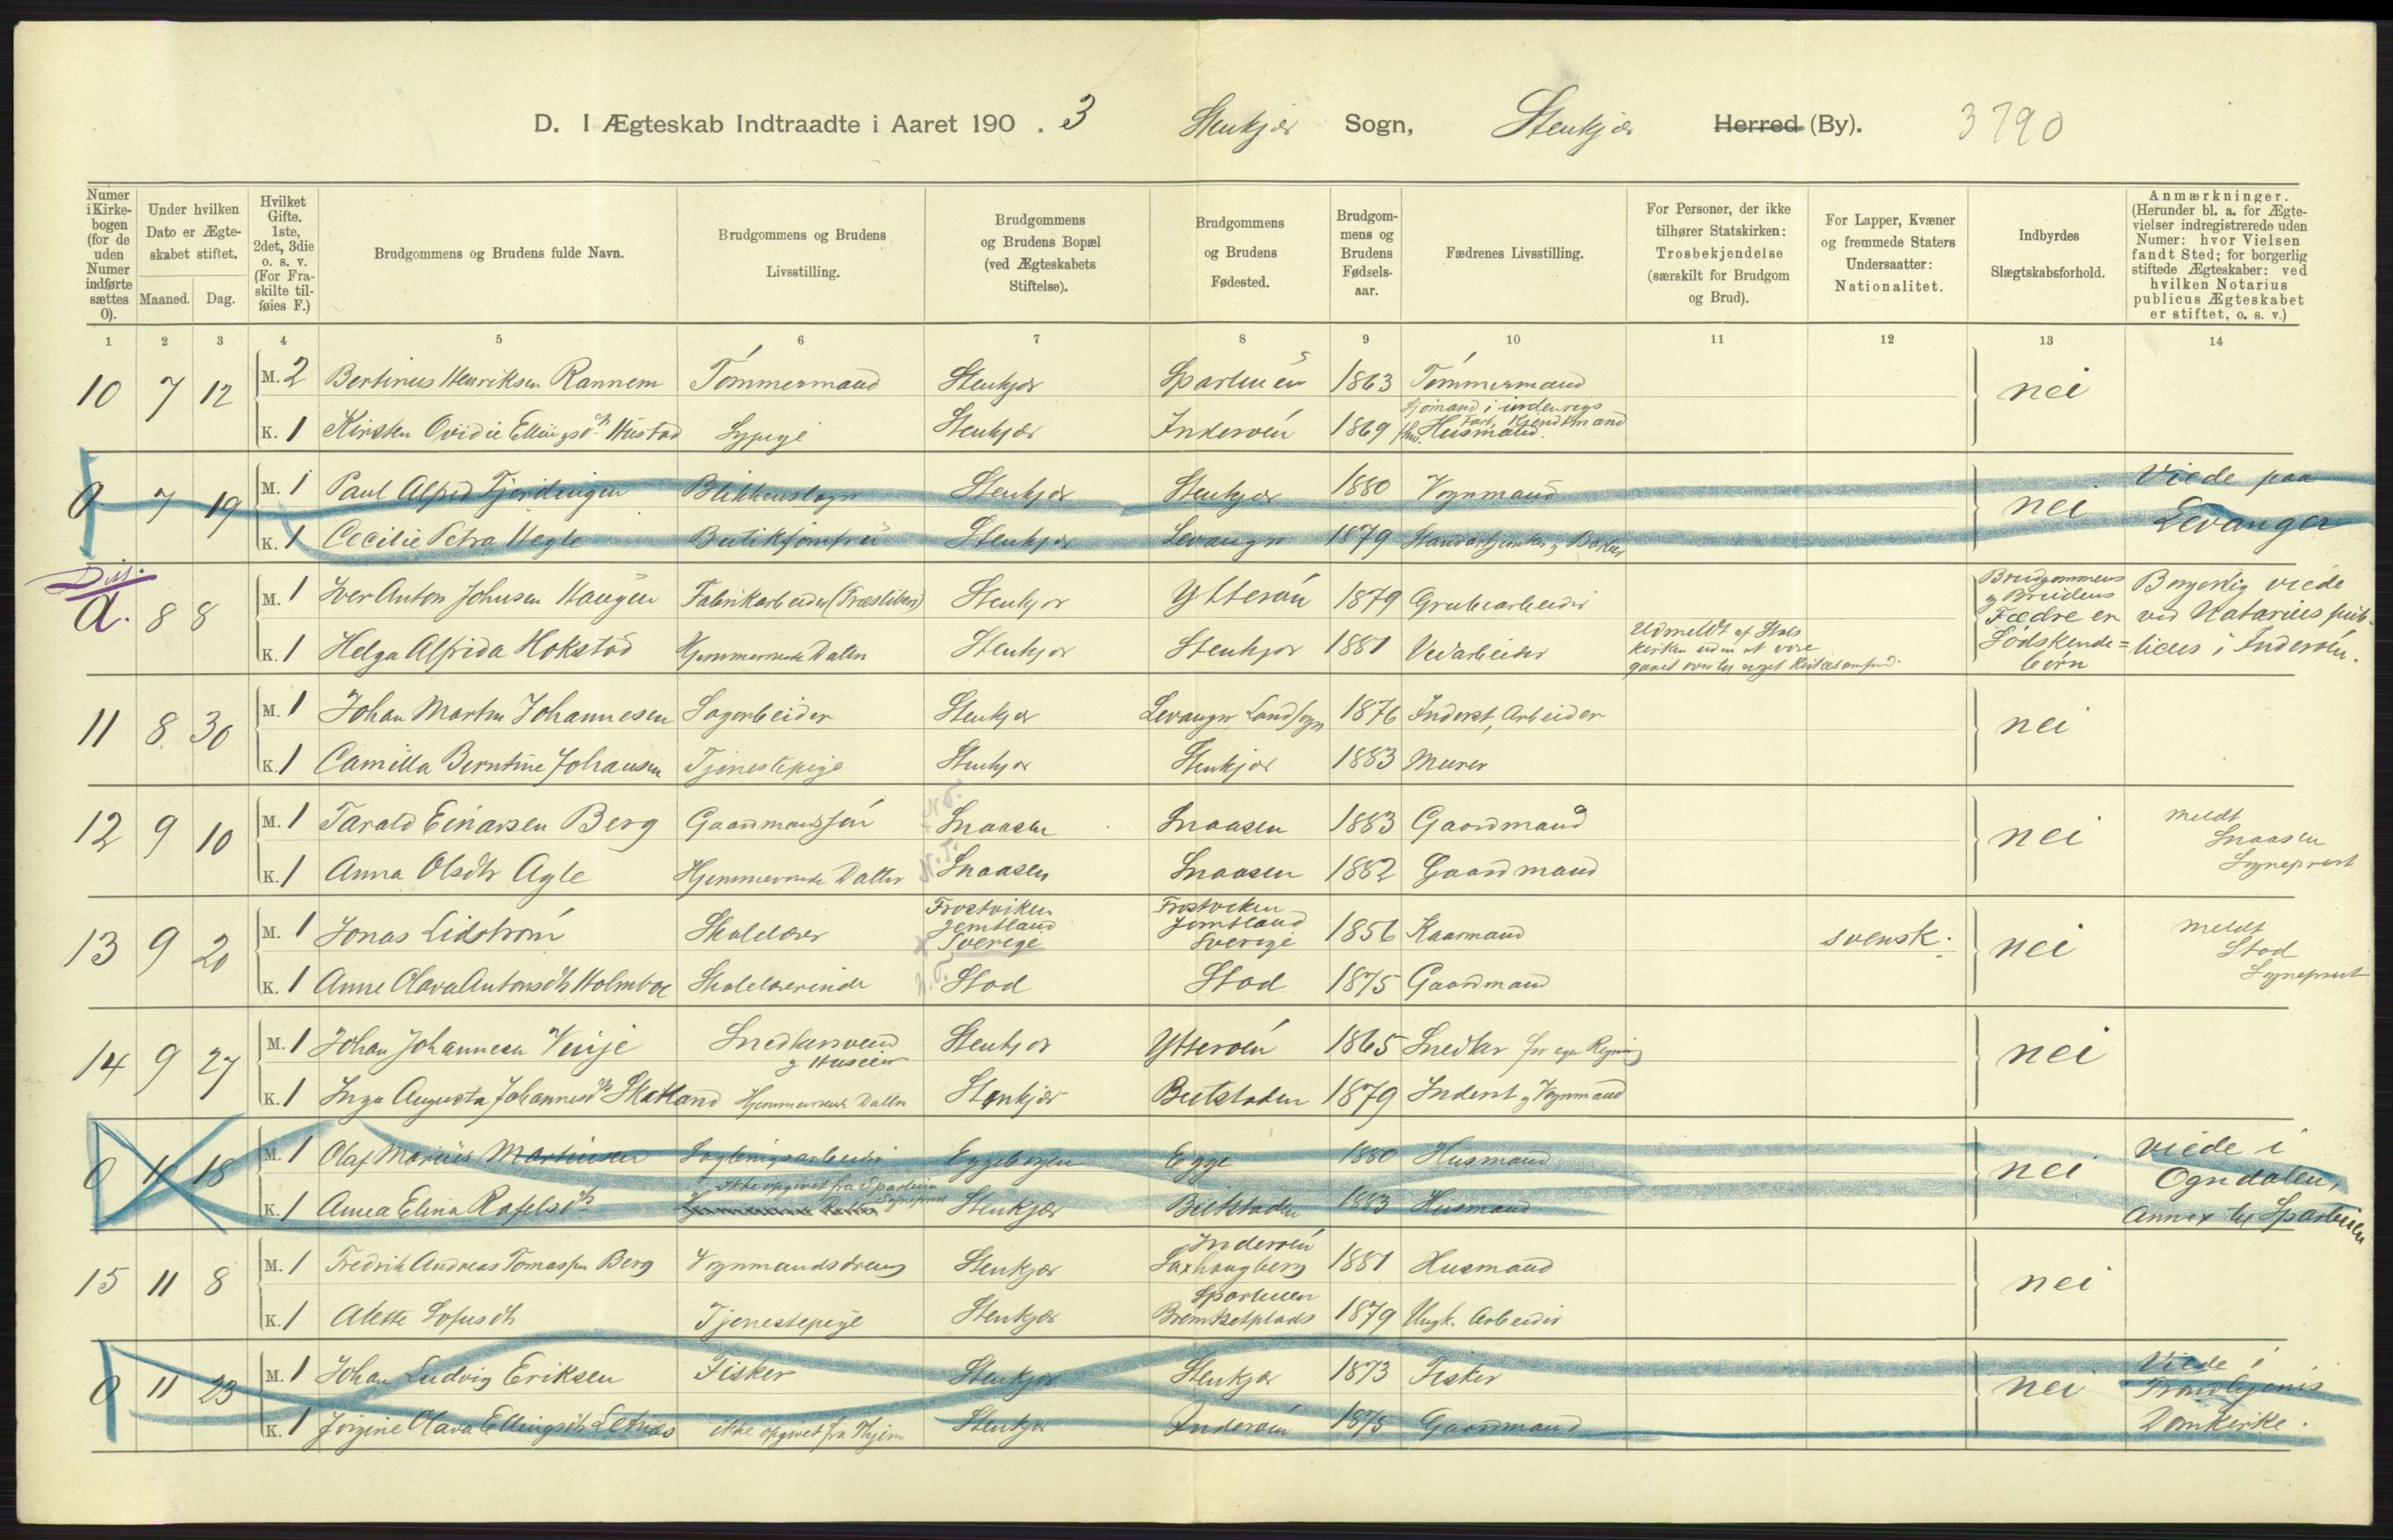 D. I Ægteskab Indtraadte i Aaret 190 . 3 Stenkjær Sogn, Stenkjær Herred (By). 3790
Numer i Kirkebogen (for de uden Numer indførte sættes 0).
Under hvilken Dato er Ægteskabet stiftet.
Maaned. Dag.
Hvilket Gifte. 1ste, 2det, 3die o. s. v. (For Fraskilte tilføies F.)
Brudgommens og Brudens fulde Navn.
Brudgommens og Brudens Livsstilling.
Brudgommens og Brudens Bopæl (ved Ægteskabets Stiftelse).
Brudgommens og Brudens Fødested.
Brudgommens og Brudens Fødselsaar.
Fædrenes Livsstilling.
For Personer, der ikke tilhører Statskirken: Trosbekjendelse (særskilt for Brudgom og Brud).
For Lapper, Kvæner og fremmede Staters Undersaatter: Nationalitet.
Indbyrdes Slægtskabsforhold.
Anmærkninger. (Herunder bl. a. for Ægtevielser indregistrerede uden Numer: hvor Vielsen fandt Sted; for borgerlig stiftede Ægteskaber: ved hvilken Notarius publicus Ægteskabet er stiftet, o. s. v.)
1 2 3 4 5 6 7 8 9 10 11 12 13 14
10 7 12 M. 2 Bertinus Henriksen Rannem Tømmermand Stenkjær Sparbuen 1863 Tømmermand nei
K. 1 Kirsten Ovidie Ellingsdtr Hustad Sypige Stenkjær Inderøen 1869 Sjømand i indenrigs Fart, Husmand
0 7 19 M. 1 Paul Alfred Fjerdingen Blikkenslager Stenkjær Stenkjær 1880 Vognmand nei Viede paa
K. 1 Cecilie Petra Hegle Butikjomfru Stenkjær Levanger 1879 Levanger
Dis.
a. 8 8 M. 1 Iver Anton Johnsen Haugen Fabrikarbeider (Træsliberi) Stenkjær Ytterøen 1879 Grubearbeider Brudgommens og Brudens Fædre er Sødskendebørn Borgerlig viede ved Notarius publicus i Inderøen.
K. 1 Helga Alfrida Hokstad Hjemmeværende Datter Stenkjær Stenkjær 1881 Vedarbeider Udmeldt af Statskirken uden at være gaaet over til noget Kirkesamfund.
11 8 30 M. 1 Johan Martin Johannesen Sagarbeider Stenkjær Levanger Landsogn 1876 Inderst, Arbeider nei
K. 1 Camilla Berntine Johansen Tjenestepige Stenkjær Stenkjær 1883 Murer
12 9 10 M. 1 Tarald Einarsen Berg Gaardmandssøn N.T. Snaasen Snaasen 1883 Gaardmand nei meldt Snaasen Sogneprest
K. 1 Anna Olsdtr Agle Hjemmeværende Datter N.T. Snaasen Snaasen 1882 Gaardmand
13 9 20 M. 1 Jonas Lidstrøm Skolelærer Frostviken Jemtland Sverige Frostviken Jemtland Sverige 1856 svensk. nei meldt Stod Sogneprest
K. 1 Anne Olava Antonsdtr Holmboe Skolelærerinde N.T. Stod Stod 1875 Gaardmand
14 9 27 M. 1 Johan Johannesen Vinje Snedkersvend og Huseier Stenkjær Ytterøen 1865 Snedker for egen Regning nei
K. 1 Inga Augusta Johannesdtr Skatland Hjemmeværende Datter Stenkjær Beitstaden 1879 Inderst og Vognmand
0 10 18 M. 1 Olaf Marius Martinsen Eggebogen Egge 1880 Husmand nei viede i Ogndalen, Annex til Sparbuen
K. 1 Anna Elina Rafelsdtr ikke opgivet fra Sparbuen Sogneprest Stenkjær Beitstaden 1883 Husmand
15 11 8 M. 1 Fredrik Andreas Tomassen Berg Vognmandsdreng Stenkjær Inderøen Saxhaugberg 1881 Husmand nei
K. 1 Alette Sofusdtr Tjenestepige Stenkjær Sparbuen Bremsetplads 1879 Ungk. Arbeider
0 11 23 M. 1 Johan Ludvig Eriksen Fisker Stenkjær Stenkjær 1873 Fisker nei Viede i Trondhjems Domkirke.
K. 1 Jørgine Olava Ellingsdtr Letnes ikke opgivet fra Stenkjær Inderøen 1875 Gaardmand